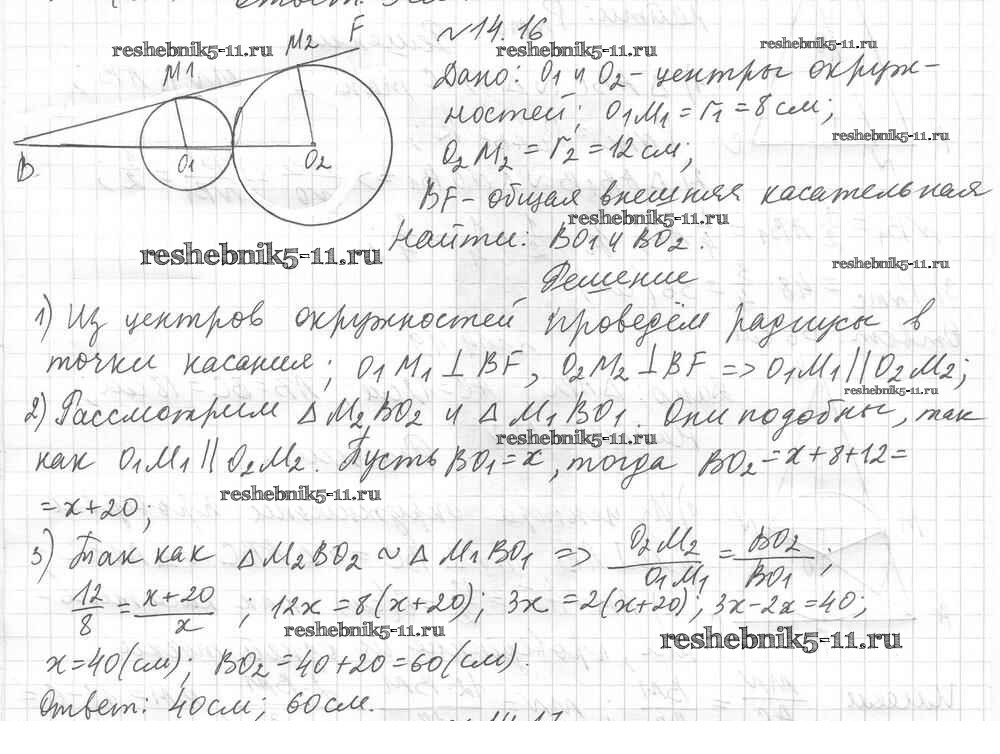 №14.16
reshebnik5-11.ru
reshebnik5-11.ru
reshebnik5-11.ru
M1 M2 F
B O1 O2
Дано: O1 и O2 - центры окруж-
ностей; O1M1 = r1 = 8 см;
reshebnik5-11.ru
O2M2 = r2 = 12 см;
BF - общая внешняя касательная
reshebnik5-11.ru
Найти: BO1 и BO2.
reshebnik5-11.ru
reshebnik5-11.ru
Решение
1) Из центров окружностей проведём радиусы в
точки касания; O1M1 ⊥ BF, O2M2 ⊥ BF => O1M1 || O2M2;
reshebnik5-11.ru
2) Рассмотрим △ M2BO2 и △ M1BO1. Они подобны, так
reshebnik5-11.ru
как O1M1 || O2M2. Пусть BO1 = x, тогда BO2 = x + 8 + 12 =
reshebnik5-11.ru
= x + 20;
3) Так как △ M2BO2 ~ △ M1BO1 => O2M2/O1M1 = BO2/BO1;
12/8 = x+20/x; 12x = 8(x+20); 3x = 2(x+20); 3x - 2x = 40;
reshebnik5-11.ru
reshebnik5-11.ru
x = 40 (см); BO2 = 40 + 20 = 60 (см).
Ответ: 40 см; 60 см.